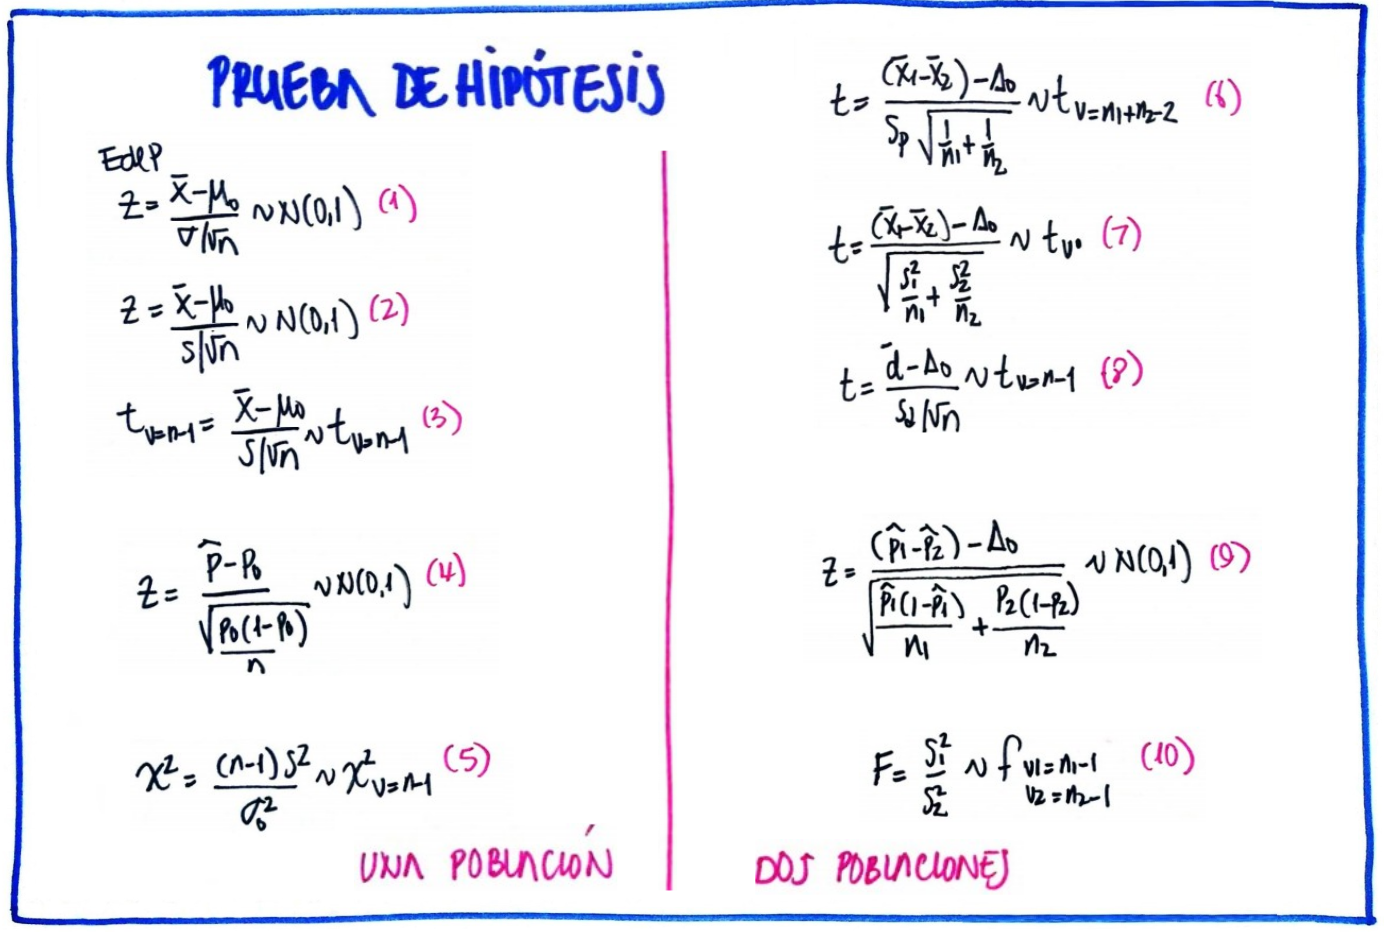 PRUEBA DE HIPÓTESIS
EdeP
Z = (x̄ - μ₀) / (σ/√n) ~ N(0,1) (1)
Z = (x̄ - μ₀) / (s/√n) ~ N(0,1) (2)
t_{v=n-1} = (x̄ - μ₀) / (s/√n) ~ t_{v=n-1} (3)
Z = (p̂ - p₀) / √(p₀(1-p₀)/n) ~ N(0,1) (4)
χ² = (n-1)S² / σ₀² ~ χ²_{v=n-1} (5)
UNA POBLACIÓN
t = ((x̄₁-x̄₂) - Δ₀) / (Sp √(1/n₁ + 1/n₂)) ~ t_{v=n₁+n₂-2} (6)
t = ((x̄₁-x̄₂) - Δ₀) / √(S₁²/n₁ + S₂²/n₂) ~ t_{v•} (7)
t = (d̄ - Δ₀) / (Sd/√n) ~ t_{v=n-1} (8)
Z = ((p̂₁-p̂₂) - Δ₀) / √(p̂₁(1-p̂₁)/n₁ + p₂(1-p₂)/n₂) ~ N(0,1) (9)
F = S₁²/S₂² ~ f_{v1=n₁-1, v2=n₂-1} (10)
DOS POBLACIONES